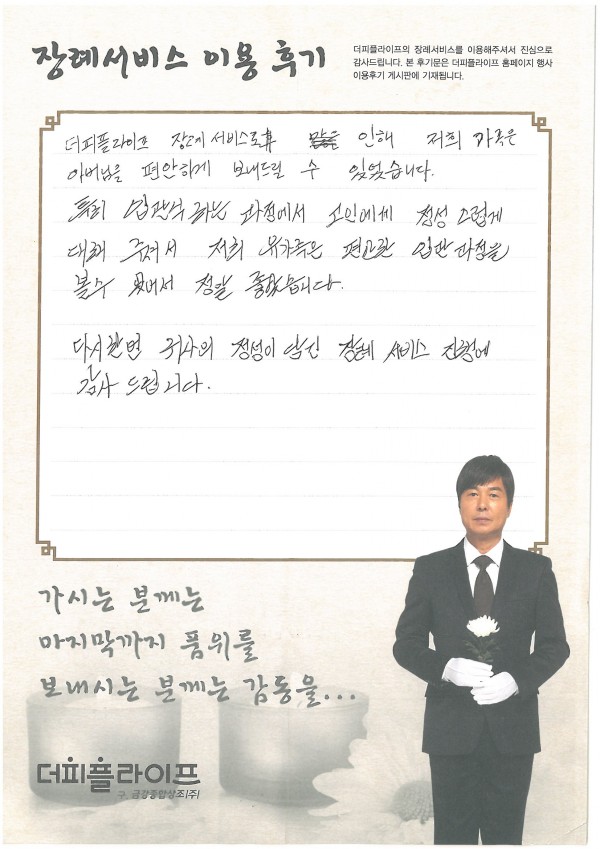 장례서비스 이용 후기
더피플라이프의 장례서비스를 이용해주셔서 진심으로
감사드립니다. 본 후기문은 더피플라이프 홈페이지 행사
이용후기 게시판에 기재됩니다.
더피플라이프 장례 서비스로 인해 저희 가족은
아버님을 편안하게 보내드릴 수 있었습니다.
특히 입관식 하는 과정에서 고인에게 정성 스럽게
대해 주셔서 저희 유가족은 편안한 입관과정을
볼수 있어서 정말 좋았습니다.
다시한번 귀사의 정성이 담긴 장례 서비스 진행에
감사 드립니다.
가시는 분께는
마지막까지 품위를
보내시는 분께는 감동을...
더피플라이프
구. 금강종합상조(주)